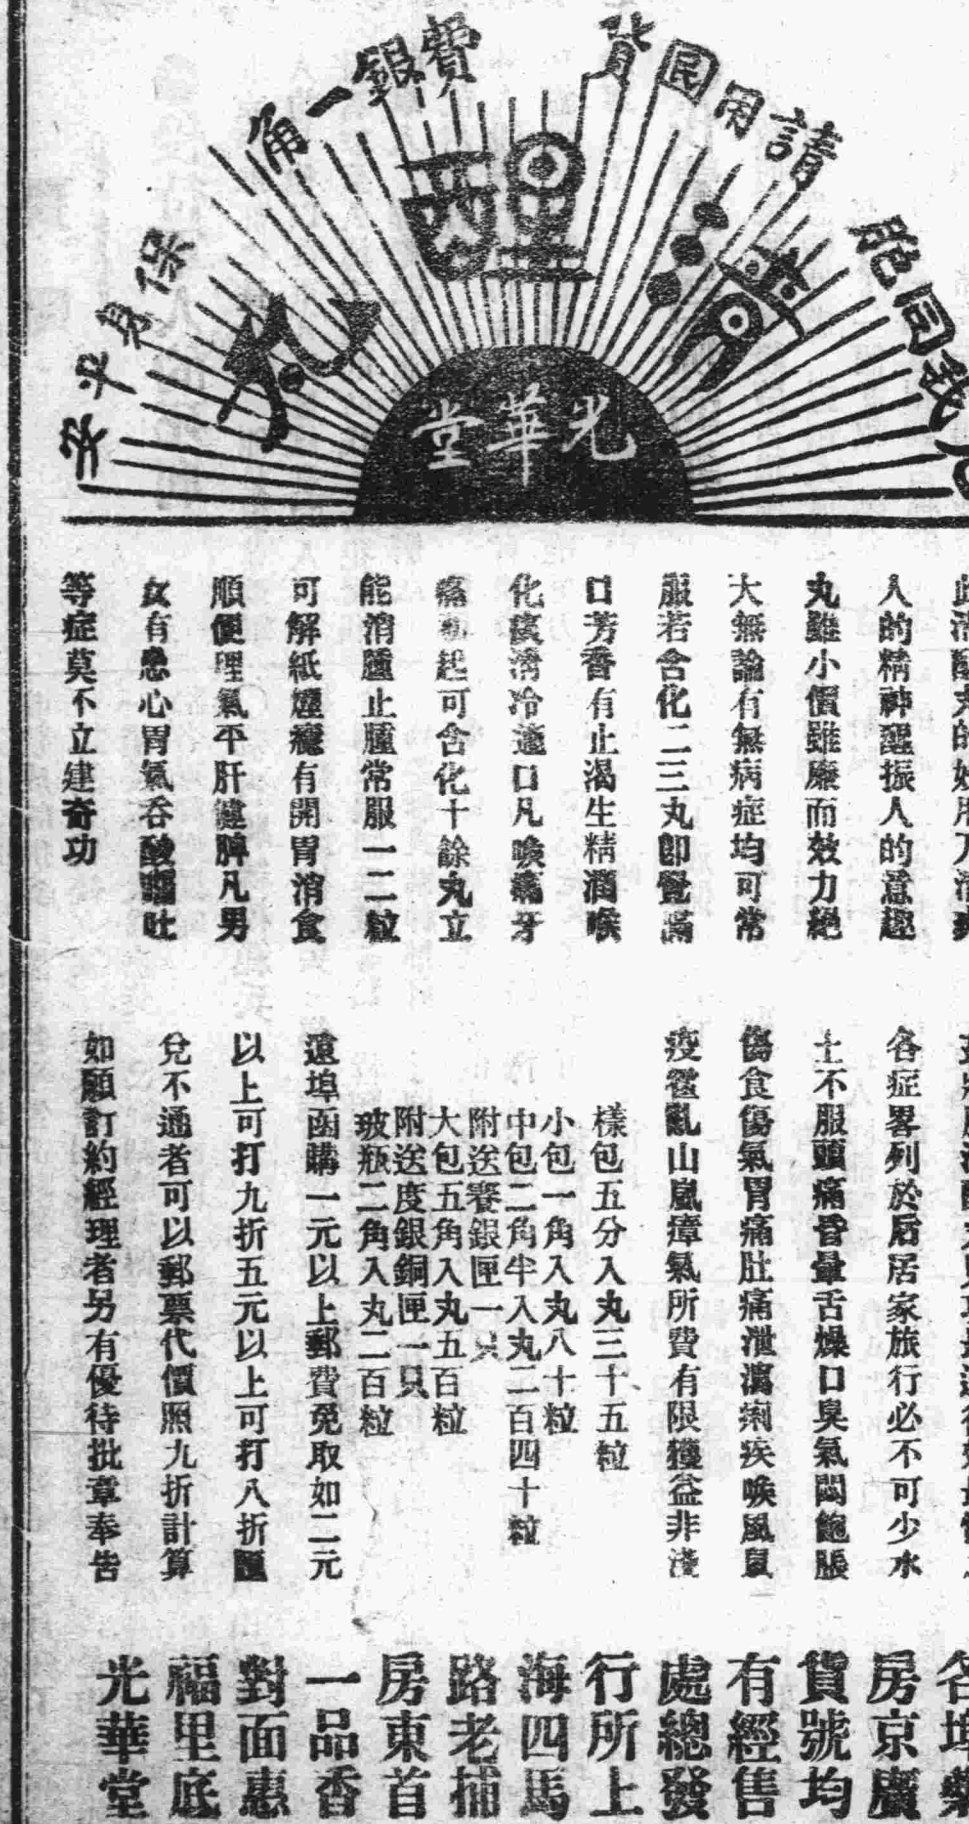 凡我同胞
請用國貨
費銀一角
保身平安
清醒丸
光華堂
人的精神醒振人的意趣
丸雖小價雖廉而效力絕
大無論有無病症均可常
服若含化二三丸卽覺滿
口芳香有止渴生精潤喉
化痰淸冷適口凡喉痛牙
痛初起可含化十餘丸立
能消腫止腫常服一二粒
可解紙煙癮有開胃消食
順便理氣平肝健脾凡男
女有患心胃氣吞酸嘔吐
等症莫不立建奇功
各症畧列於后居家旅行必不可少水
土不服頭痛昏暈舌燥口臭氣悶飽脹
傷食傷氣胃痛肚痛泄瀉痢疾喉風鼠
疫霍亂山嵐瘴氣所費有限獲益非淺
樣包五分入丸三十五粒
小包一角入丸八十粒
中包二角半入丸二百四十粒
附送賽銀匣一只
大包五角入丸五百粒
附送度銀銅匣一只
玻瓶二角入丸二百粒
遠埠函購一元以上郵費免取如二元
以上可打九折五元以上可打八折匯
兌不通者可以郵票代價照九折計算
如願訂約經理者另有優待批章奉告
各埠藥
房京廣
貨號均
有經售
處總發
行所上
海四馬
路老捕
房東首
一品香
對面惠
福里底
光華堂